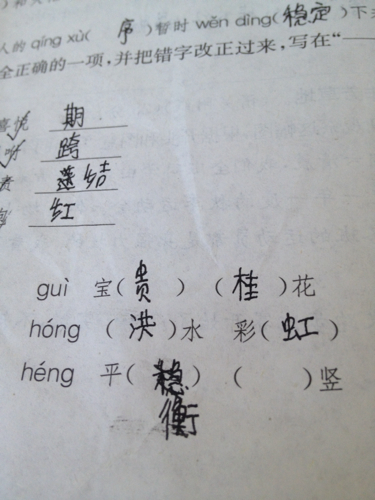 人的 qíng xù( 序 )暂时 wěn dìng(稳定)下
全正确的一项,并把错字改正过来,写在“
期
跨
结
红
guì 宝(贵) (桂)花
hóng (洪)水 彩(虹)
héng 平(稳) ( )竖
衡